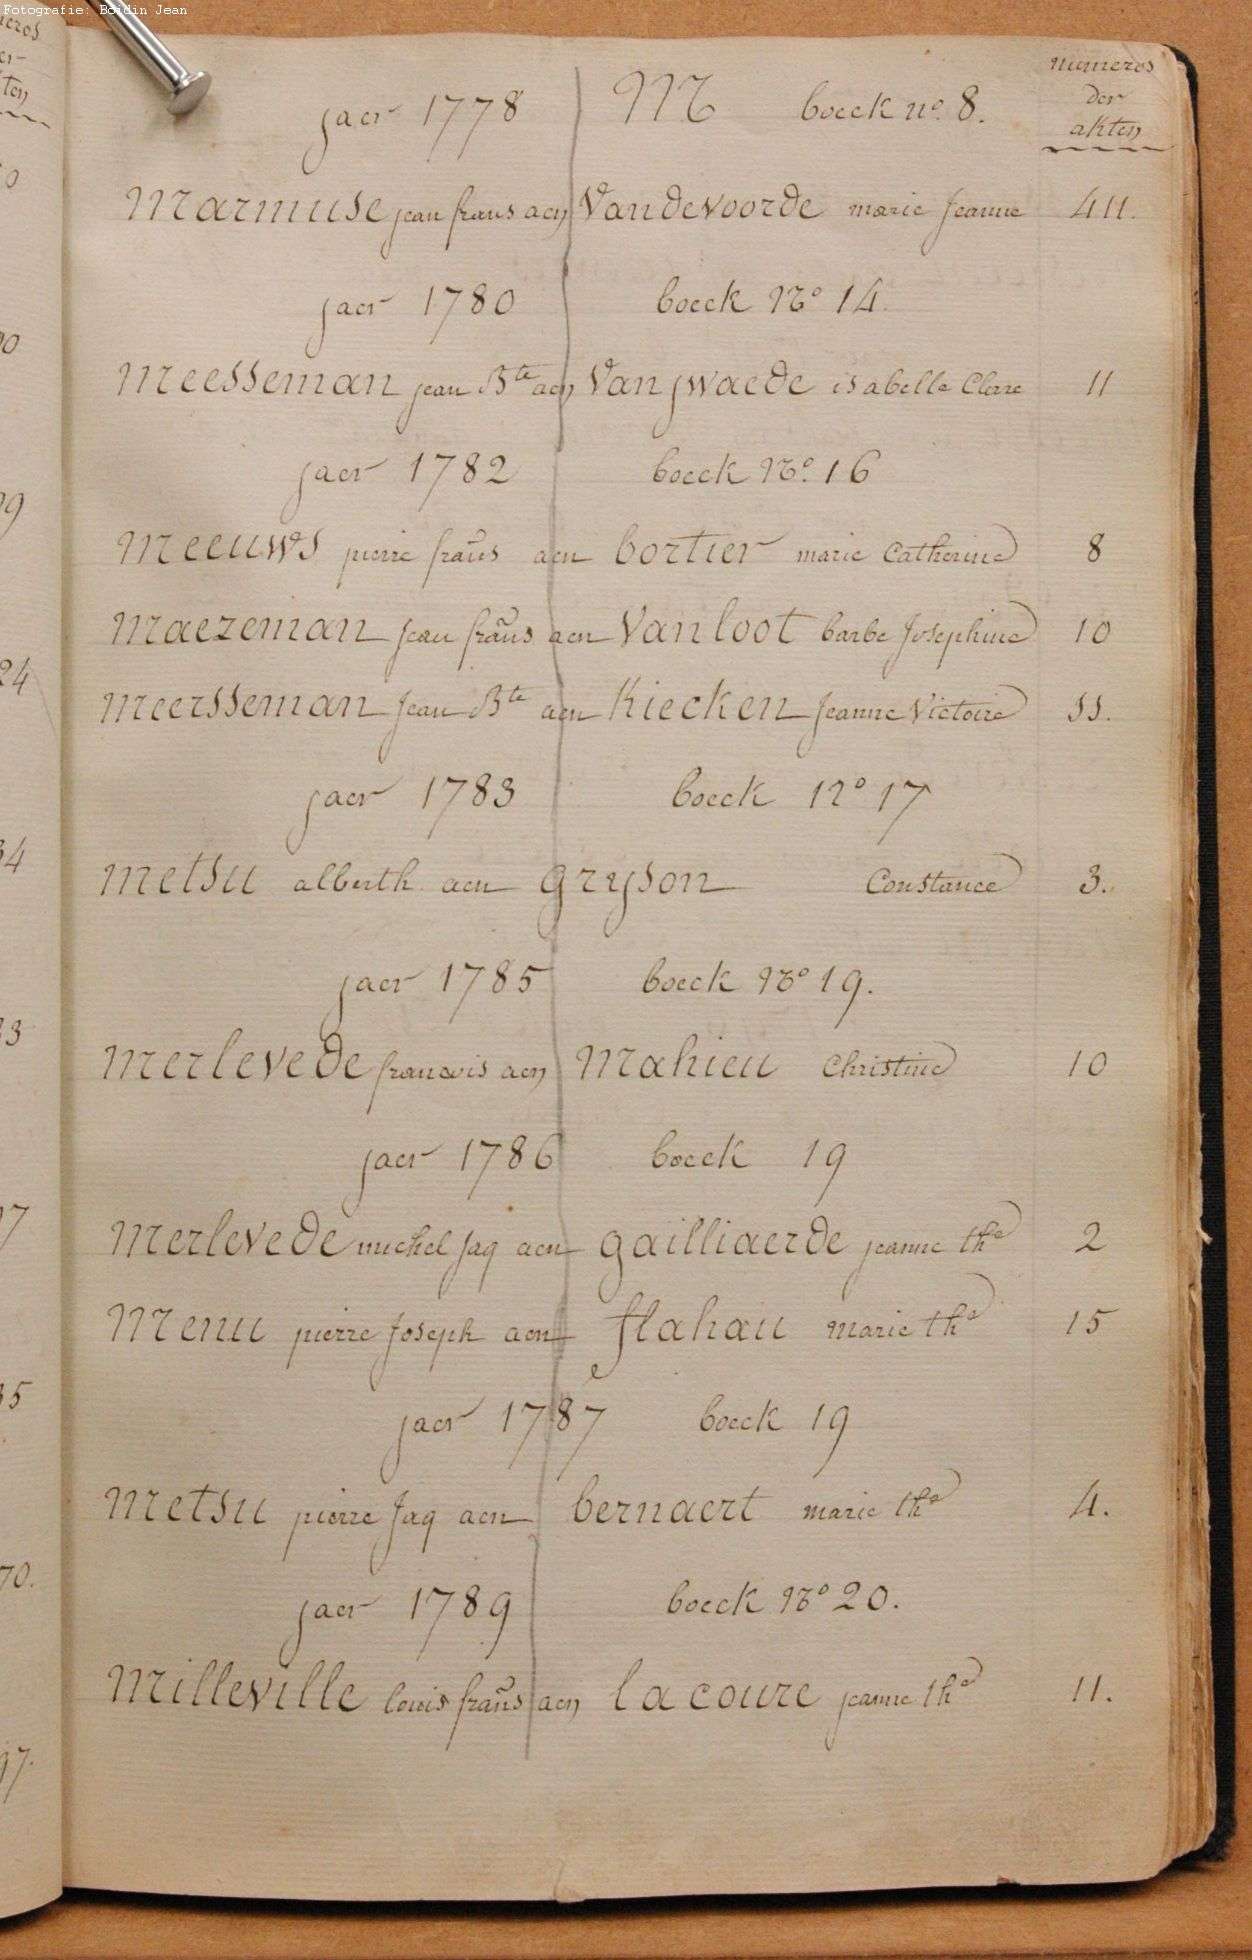 Fotografie: Boidin Jean
numeros
der
akten
jaer 1778 M boeck no. 8.
Marmuse jean frans aen Vandevoorde marie Jeanne 411.
jaer 1780 boeck No 14.
Meesseman jean Bte aen Van jwaede isabelle Clare 11
jaer 1782 boeck No. 16
Meeuws pierre frans aen bortier marie Catherine 8
Maezeman Jean frans aen Vanloot barbe Josephine 10
Meersseman Jean Bte aen Kiecken Jeanne Victoire 11.
jaer 1783 boeck No 17
Metsu alberth aen gryson Constance 3.
jaer 1785 boeck No 19.
Merlevede francois aen Mahieu Christine 10
jaer 1786 boeck 19
Merlevede michel Jaq aen gailliaerde jeanne the 2
Menu pierre Joseph aen flahau marie the 15
jaer 1787 boeck 19
Metsu pierre Jaq aen bernaert marie the 4.
jaer 1789 boeck No 20.
Milleville louis frans aen lacoure jeanne the 11.